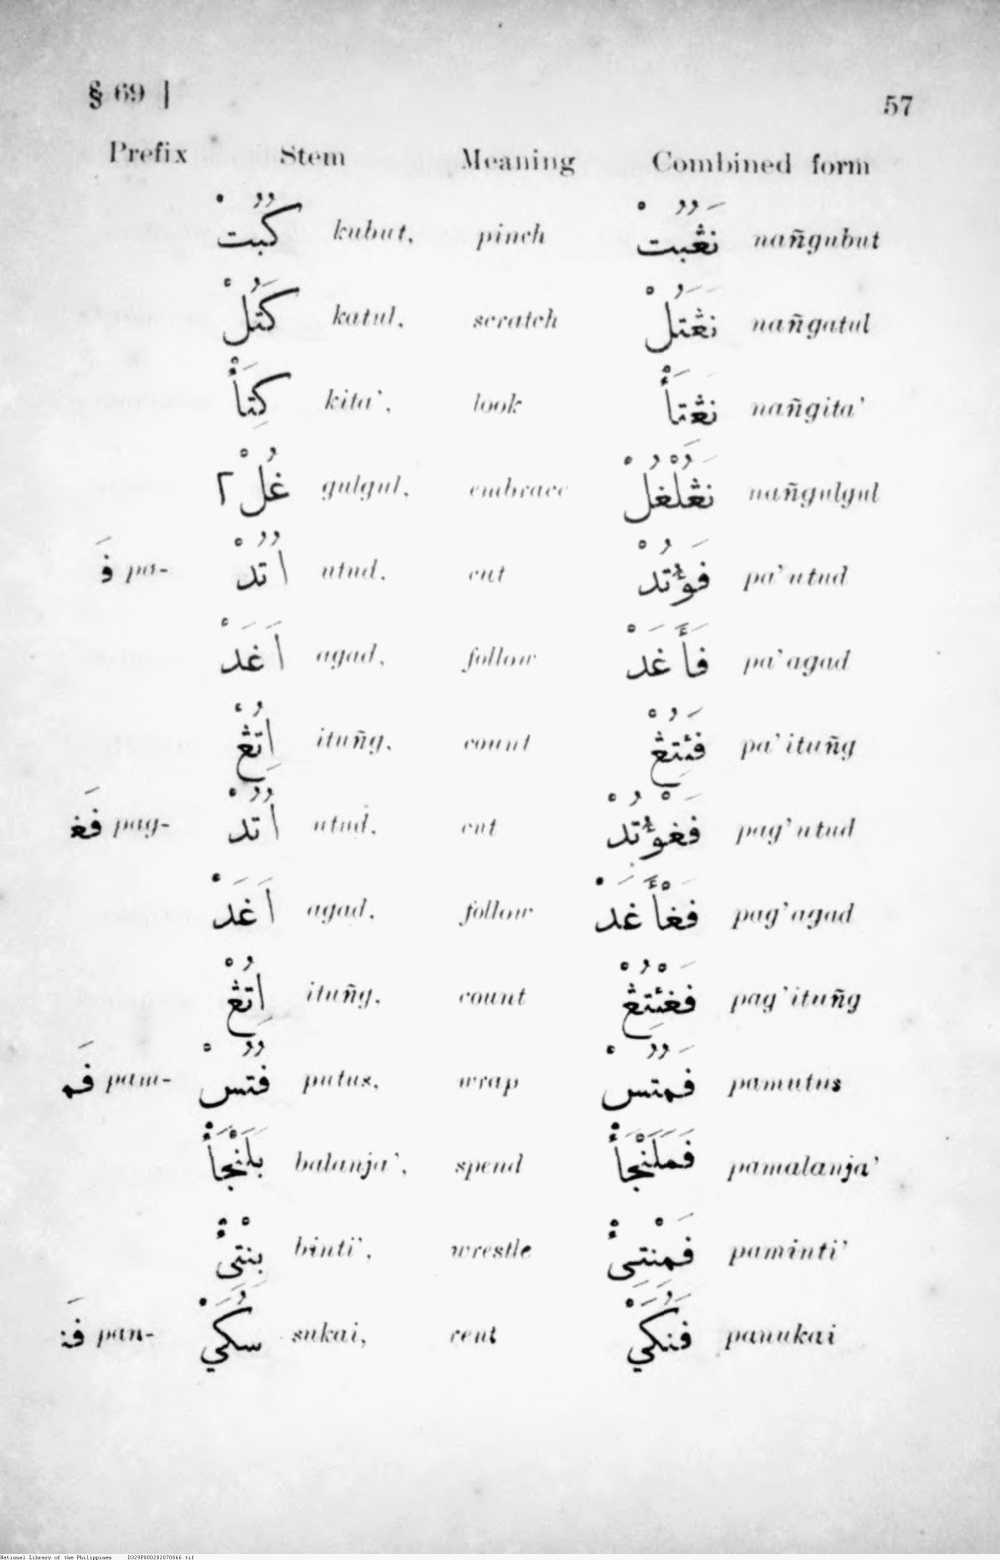 § 69 ]
57
Prefix Stem Meaning Combined form
كُبُتْ kubut, pinch نَڠُبُتْ nañgubut
كَتُلْ katul, scratch نَڠَتُلْ nañgatul
كِتَأْ kita', look نَڠِتَأْ nañgita'
غُلْ٢ gulgul, embrace نَڠُلْغُلْ nañgulgul
فَ pa- اُتُدْ utud, cut فَؤُتُدْ pa'utud
اَغَدْ agad, follow فَأَغَدْ pa'agad
اِتُڠْ ituñg, count فَئِتُڠْ pa'ituñg
فَغ pag- اُتُدْ utud, cut فَغْؤُتُدْ pag'utud
اَغَدْ agad, follow فَغْأَغَدْ pag'agad
اِتُڠْ ituñg, count فَغْئِتُڠْ pag'ituñg
فَم pam- فُتُسْ putus, wrap فَمُتُسْ pamutus
بَلَنْجَأْ balanja', spend فَمَلَنْجَأْ pamalanja'
بِنْتِئْ binti', wrestle فَمِنْتِئْ paminti'
فَن pan- سُكَيْ sukai, rent فَنُكَيْ panukai
National Library of the Philippines